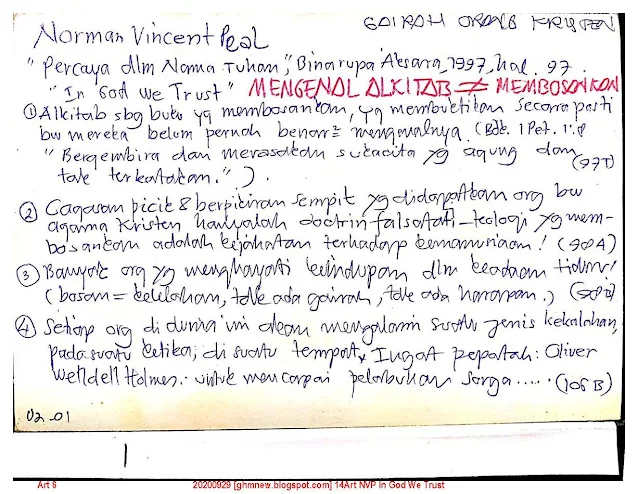 GAIRAH ORANG KRISTEN
Norman Vincent Peal
"Percaya dlm Nama Tuhan," Binarupa Aksara, 1997, hal. 97.
"In God We Trust" MENGENAL ALKITAB ≠ MEMBOSANKAN
① Alkitab sbg buku yg membosankan, yg membuktikan secara pasti
bw mereka belum pernah benar² mengenalnya. (Bdk. 1 Pet. 1:8
"Bergembira dan merasakan sukacita yg agung dan
tak terkatakan."). (97T)
② Gagasan picik & berpikiran sempit yg didapatkan org bw
agama Kristen hanyalah doctrin falsafati - teologi yg mem-
bosankan adalah kejahatan terhadap kemanusiaan! (98A)
③ Banyak org yg menghayati kehidupan dlm keadaan tidur!
(bosan = kelelahan, tak ada gairah, tak ada harapan.)
④ Setiap org di dunia ini akan mengalami suatu jenis kekalahan,
pada suatu ketika, di suatu tempat, Ingat pepatah: Oliver
Wendell Holmes: untuk mencapai pelabuhan sorga ..... (105B)
02-01
Art 6 20200929 [ghmnew.blogspot.com] 14Art NVP In God We Trust